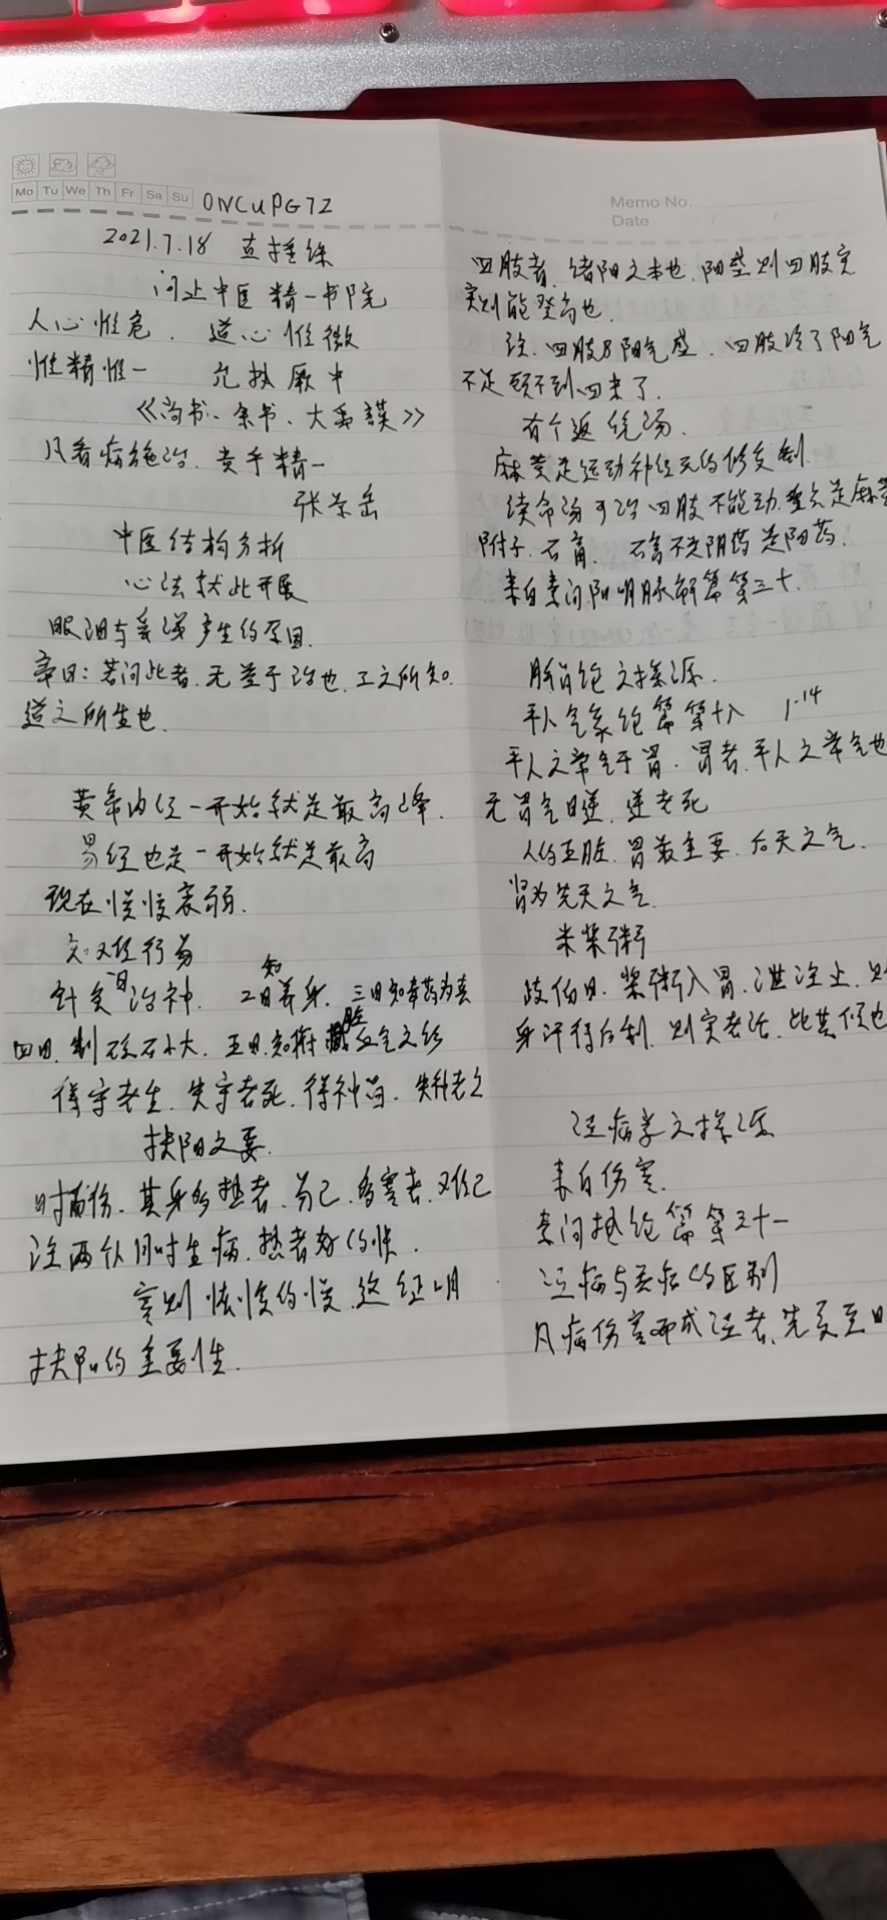 Mo Tu We Th Fr Sa Su
ONCUPG7Z
2021.7.18 直播缘
问止中医 精一书院
人心惟危. 道心惟微
惟精惟一 允执厥中
《尚书、余书、大禹谟》
凡看病施治. 贵乎精一
张景岳
中医结构分析
心法就此开展
眼泪与鼻涕产生的原因.
帝曰: 若问此者. 无益于治也. 工之所知.
道之所生也.
黄帝内经一开始就是最高峰.
易经也是一开始就是最高
现在慢慢衰弱.
知难行易
针灸曰治神. 二曰知养身. 三曰知毒药为真
四曰. 制砭石小大. 五曰. 知府脏血气之诊
得守者生. 失守者死. 得神昌. 失神者亡
扶阳之要.
时而伤. 其身多热者. 易已. 多寒者. 难已
注 两个人同时生病. 热者好的快.
寒则恢复的慢. 这证明
扶阳的重要性.
Memo No.
Date / /
四肢者. 诸阳之本也. 阳盛则四肢实
实则能登高也.
注. 四肢为阳气盛. 四肢冷了阳气
不足 顾不到四末了.
有个返魂汤.
麻黄是运动神经元的修复剂.
续命汤可治四肢不能动. 重点是麻黄
附子. 石膏. 石膏不是阴药 是阳药.
来自素问阳明脉解篇第三十.
脐 绝之探源.
平人气象论篇第十八 1-14
平人之常气于胃. 胃者. 平人之常气也
无胃气曰逆. 逆者死
人的五脏. 胃最重要. 后天之气.
肾为先天之气.
米浆粥
歧伯曰. 浆粥入胃. 泄注止. 则
身汗得后利. 则实者活. 此其候也
温病学之探源
来自伤寒.
素问热论篇第三十一
温病与暑病的区别
凡病伤寒而成温者. 先夏至日